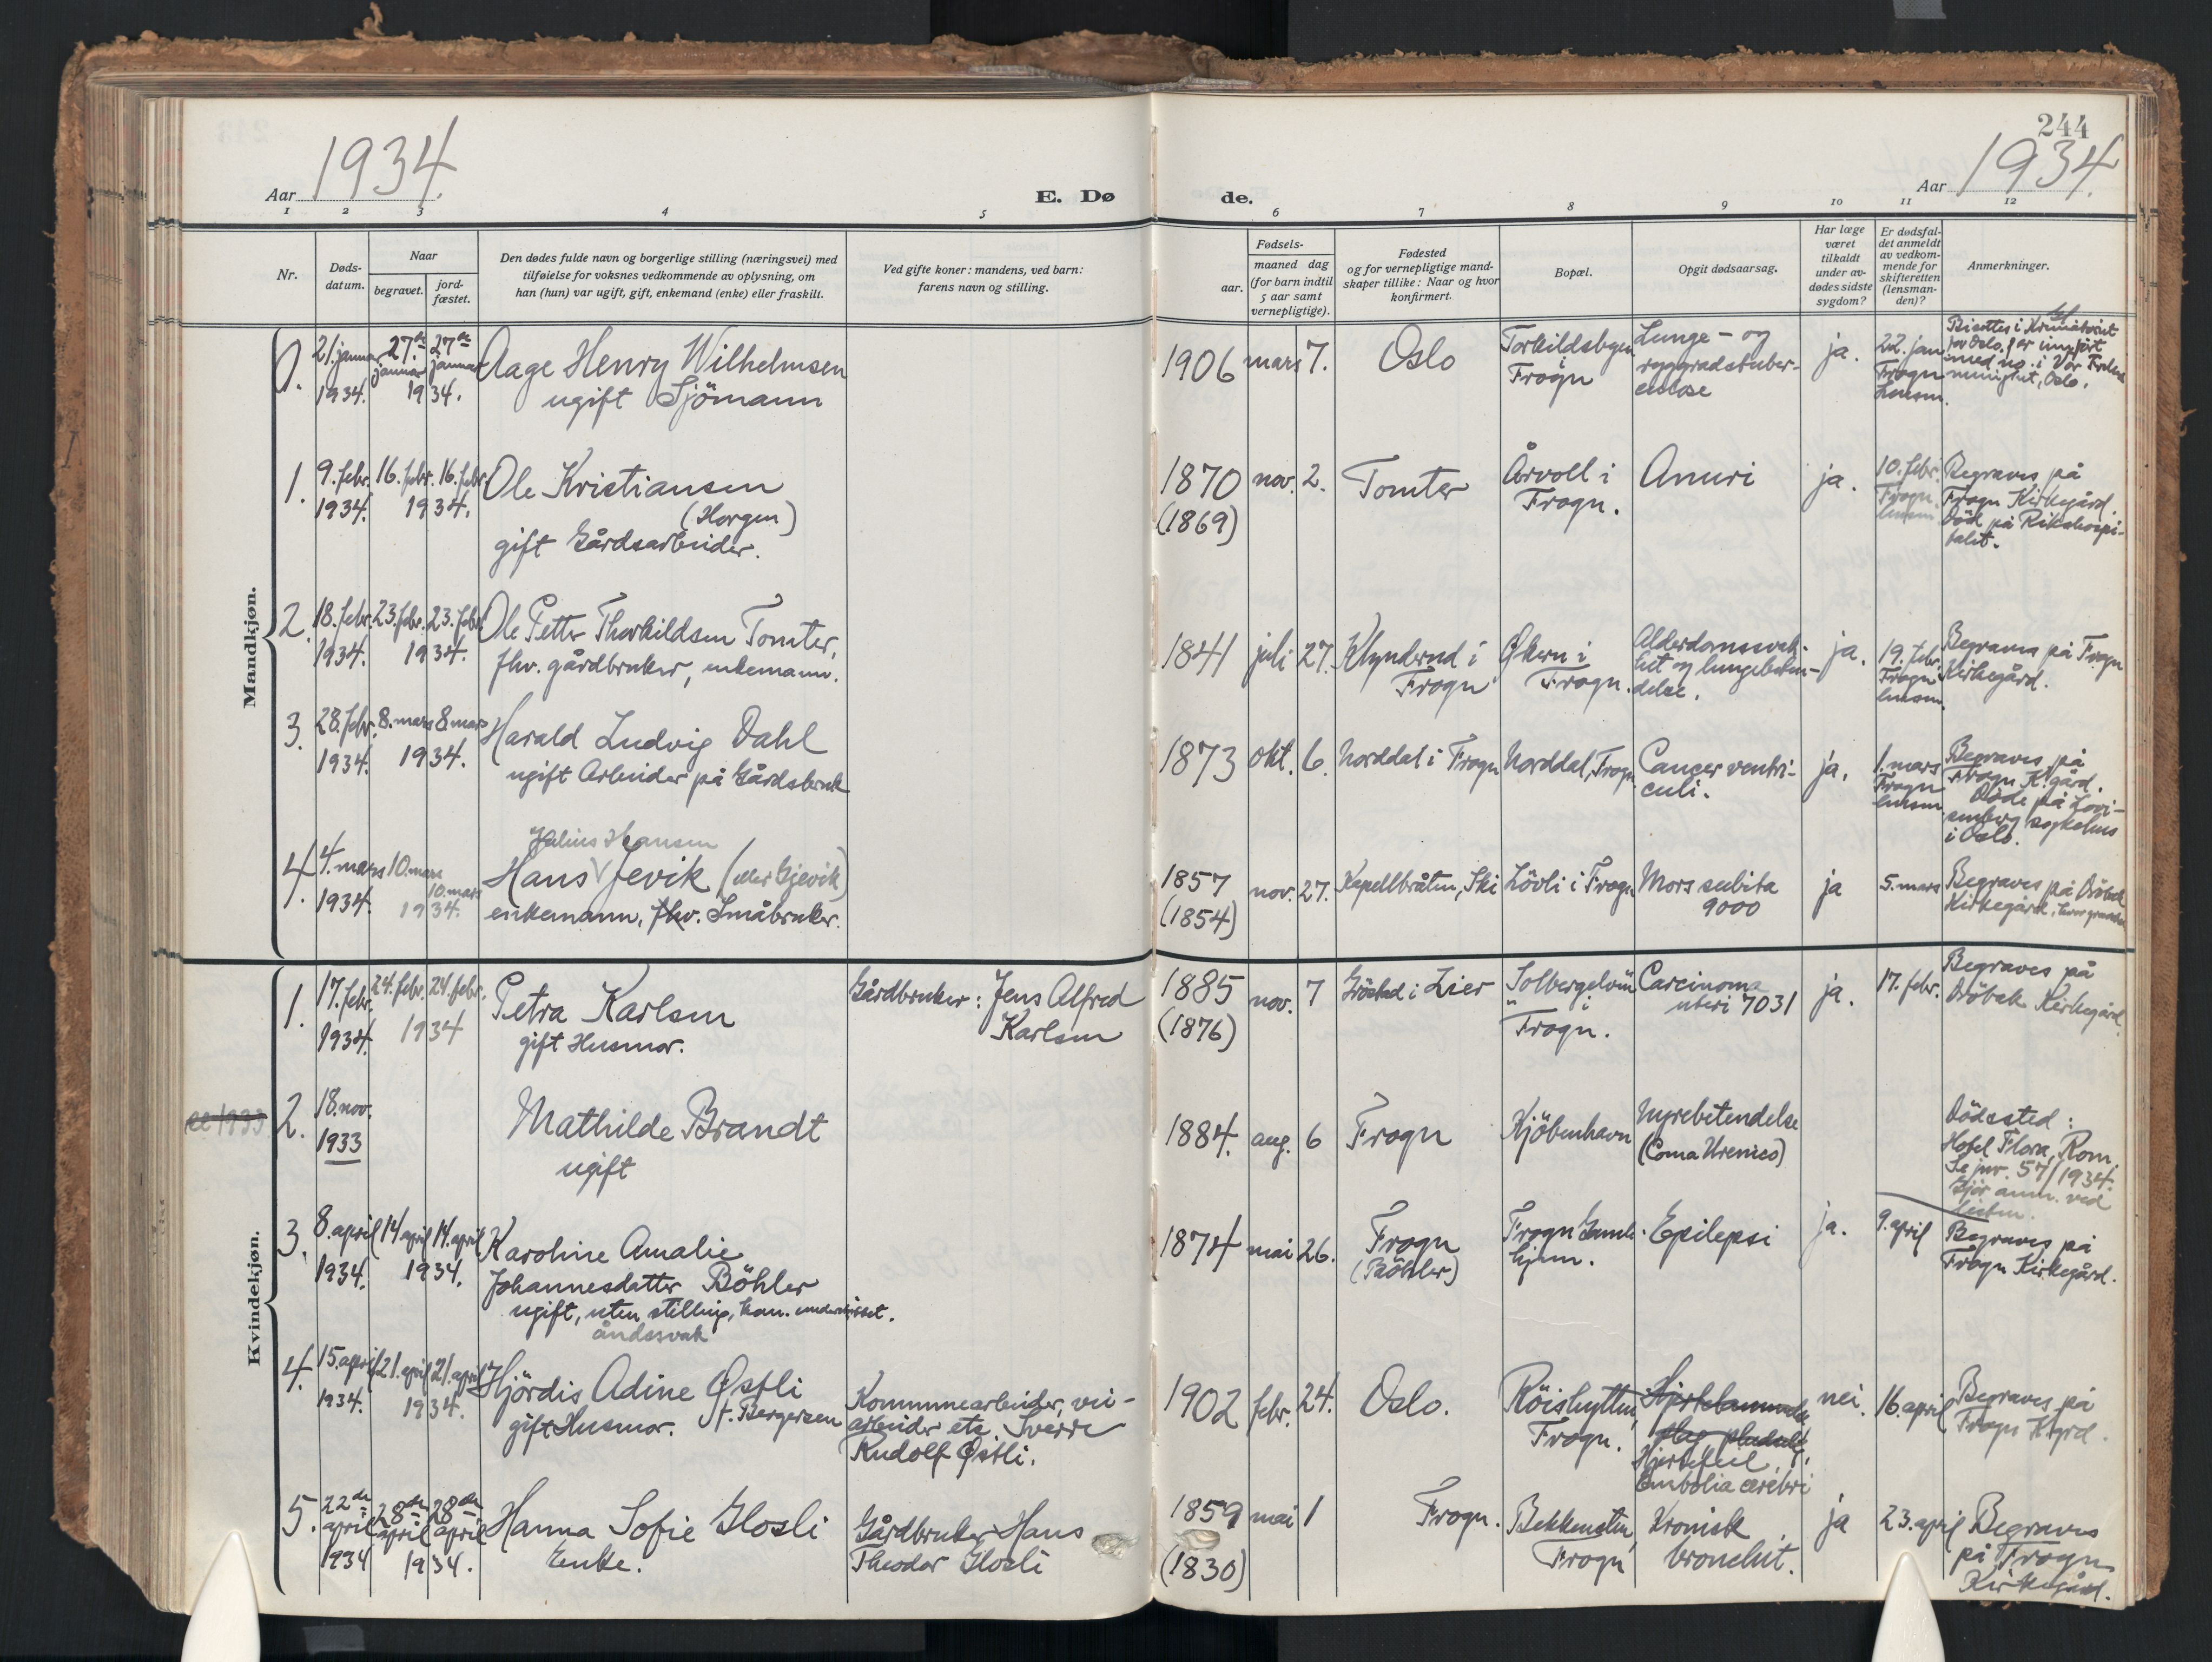 244
Aar 1934.
E. Dø
de.
Aar 1934.
1 2 3 4 5 6 7 8 9 10 11 12
Nr.
Døds-
datum.
Naar
begravet.
jord-
fæstet.
Den dødes fulde navn og borgerlige stilling (næringsvei) med
tilføielse for voksnes vedkommende av oplysning, om
han (hun) var ugift, gift, enkemand (enke) eller fraskilt.
Ved gifte koner: mandens, ved barn:
farens navn og stilling.
Fødsels-
aar.
maaned dag
(for barn indtil
5 aar samt
vernepligtige).
Fødested
og for vernepligtige mand-
skaper tillike: Naar og hvor
konfirmert.
Bopæl.
Opgit dødsaarsag.
Har læge
været
tilkaldt
under av-
dødes sidste
sygdom?
Er dødsfal-
det anmeldt
av vedkom-
mende for
skifteretten
(lensman-
den)?
Anmerkninger.
Mandkjøn.
0.
21. januar
1934.
27de januar 27de januar
1934.
Aage Henry Wilhelmsen
ugift Sjömann
1906 mars 7.
Oslo
Torkildsbyen
Frogn
Lunge- og
ryggradstuber-
culose
ja.
22. jan
Frogn
Lensm.
Bisettes i Krematoriet
for Oslo,
med no. i Vår Frelsers
Oslo.
1.
9. febr.
1934.
16. febr. 16. febr.
1934.
Ole Kristiansen
(Horgen)
gift Gårdsarbeider.
1870
(1869)
nov. 2.
Tomter
Årvoll i
Frogn.
Anuri
ja.
10. febr.
Frogn
lensm
Begraves på
Frogn Kirkegård.
Död på Rikshospi-
talet.
2.
18. febr.
1934.
23. febr. 23. febr.
1934.
Ole Petter Thorkildsen Tomter,
fhv. gårdbruker, enkemann.
1841 juli 27.
Klynderud i
Frogn
Økern i
Frogn.
Alderdomssvak-
het og lungebeten-
delse.
ja.
19. febr.
Frogn
lensm.
Begraves på Frogn
Kirkegård.
3.
28. febr.
1934.
8. mars 8 mars
1934.
Harald Ludvig Dahl
ugift Arbeider på Gårdsbruk
1873 okt. 6.
Norddal i Frogn
Norddal, Frogn
Cancer ventri-
culi.
ja.
1. mars
Frogn
lensm
Begraves på
Frogn K.gård.
Döde på Lovi-
senberg sykehus
i Oslo.
4.
4. mars
1934.
10. mars
10. mars
1934.
Julius Hansen
Hans V Jevik (eller Gjevik)
enkemann, fhv. Småbruker.
1857
(1854)
nov. 27.
Kapellbråten, Ski
Lövli i Frogn
Mors subita
9000
ja
5. mars
Begraves på Dröbak
Kirkegård, hvor graven
Kvindekjøn.
1.
17. febr.
1934.
24. febr. 24. febr.
1934
Petra Karlsen
gift Husmor.
Gårdbruker: Jens Alfred
Karlsen
1885
(1876)
nov. 7
Gröstad i Lier
Solbergelven
i
Frogn.
Carcinoma
uteri 7031
ja.
17. febr.
Begraves på
Dröbak Kirkegård
1933
2.
18. nov.
1933
Mathilde Brandt
ugift
1884. aug. 6
Frogn
Kjöbenhavn
Nyrebetendelse
(Coma Uremico)
Dödssted:
Hotel Flora, Rom
Se jnr. 57/1934.
Gjör anm. ved
listen.
3.
8. april
1934.
14 april 14. april
1934.
Karoline Amalie
Johannesdatter Böhler
ugift, uten stilling, kan. undervisset.
åndssvak
1874 mai 26.
Frogn
(Böhler)
Frogn Gamle-
hjem.
Epilepsi
ja.
9. april
Begraves på
Frogn Kirkegård.
4.
15. april
1934.
21. april 21. april
1934.
Hjördis Adine Østli
gift Husmor. f. Bergersen
Kommunearbeider, vei-
arbeider etc. Sverre
Rudolf Østli.
1902 febr. 24.
Oslo.
Röishytten,
Frogn.
Hjertefeil.
Embolia cerebri
nei.
16. april
Begraves på
Frogn Kgrd.
5.
22de
april
1934
28de april 28de april
1934.
Hanna Sofie Glosli
Enke.
Gårdbruker Hans
Theodor Glosli
1859
(1830)
mai 1
Frogn.
Bekkensten,
Frogn
Kronisk
bronchit.
ja
23. april
Begraves
på Frogn
Kirkegård.